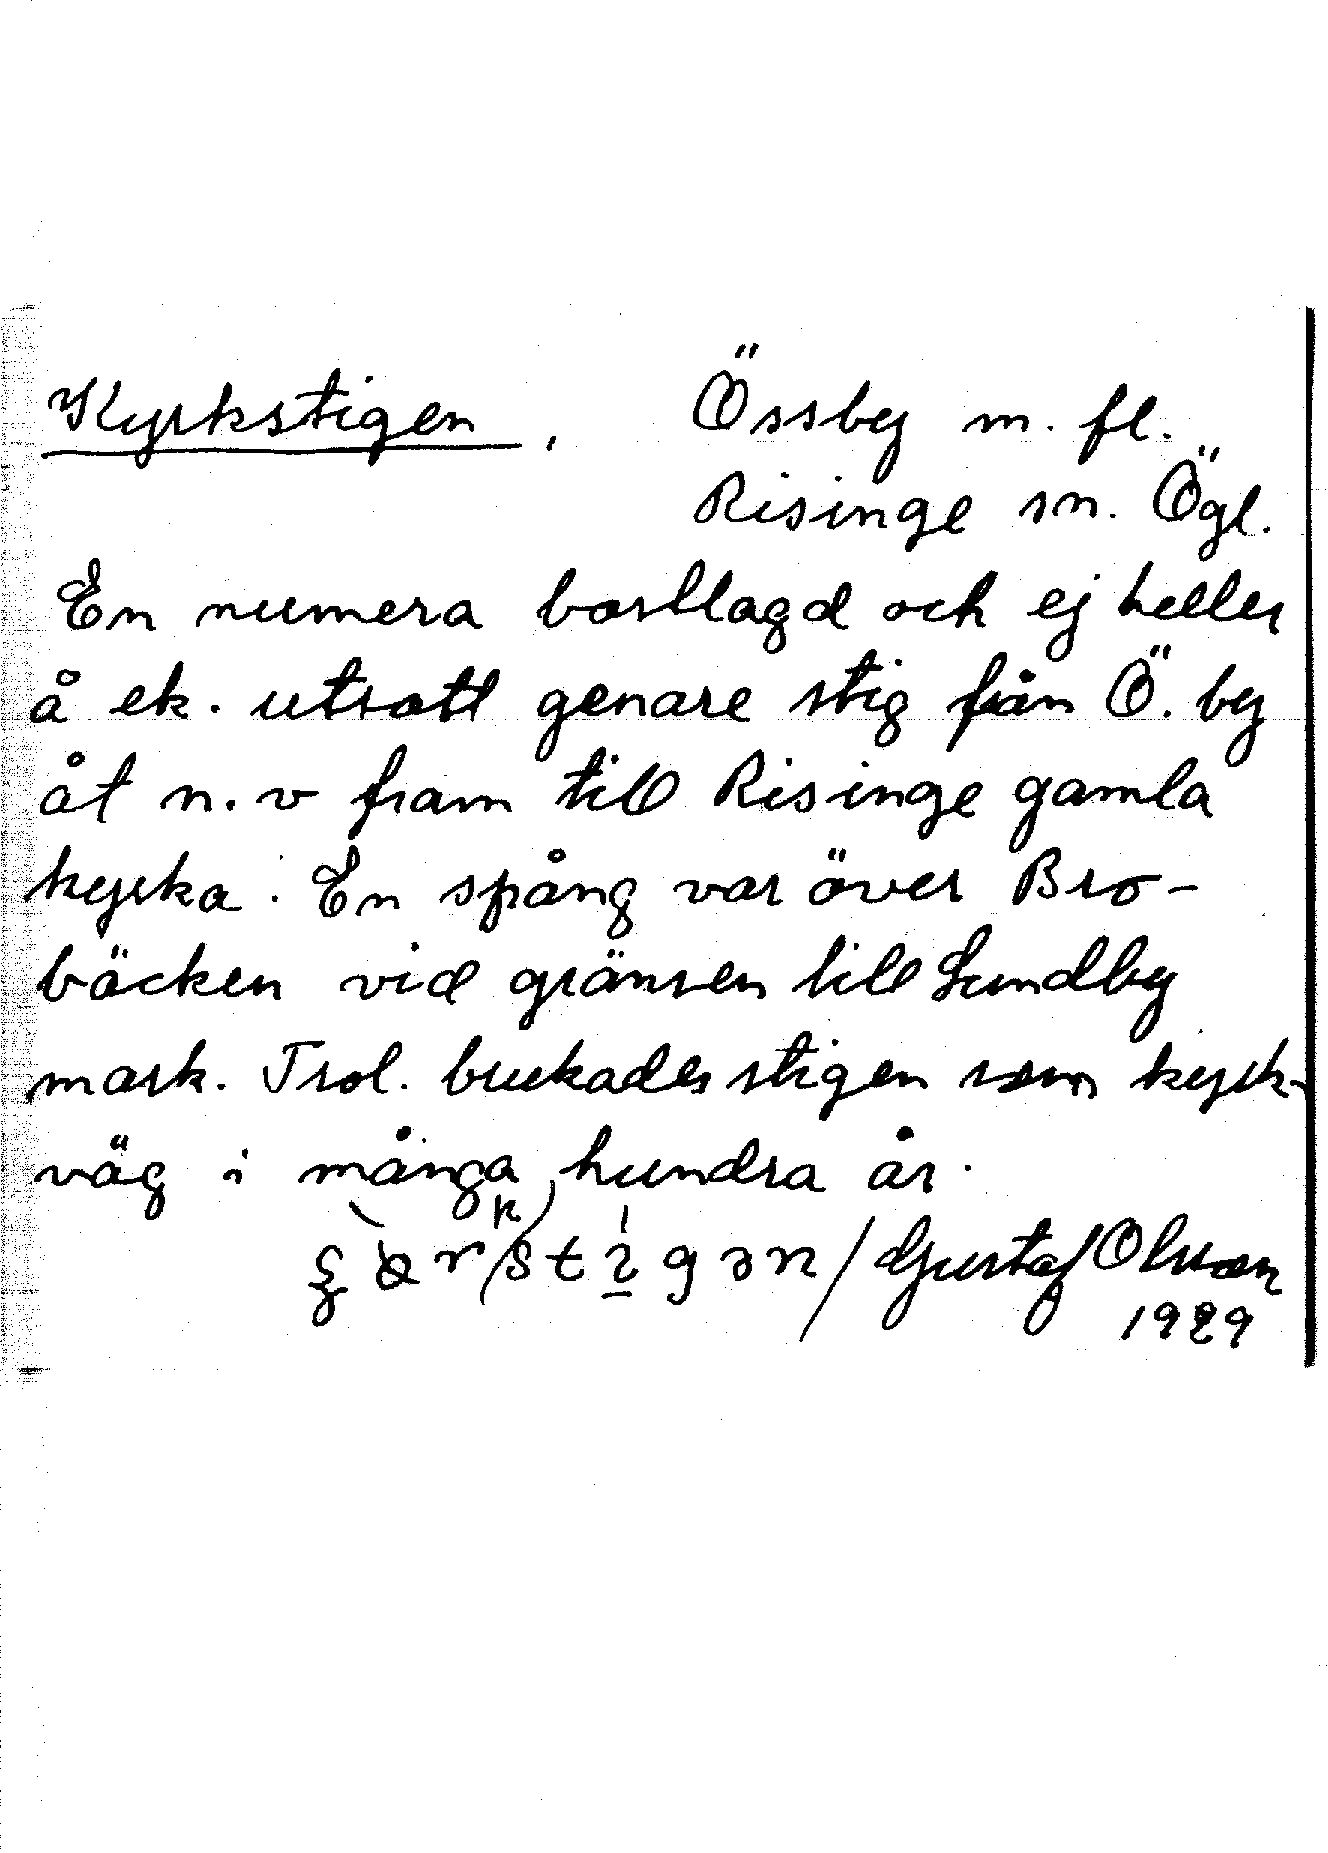 Kyrkstigen, Össby m. fl.
Risinge sn. Ögl.
En numera bortlagd och ej heller
å ek. utsatt genare stig från Ö. by
åt n.v fram till Risinge gamla
kyrka. En spång var över Bro-
bäcken vid gränsen till Lundby
mark. Trol. brukades stigen som kyrk-
väg i många hundra år.
/Gustaf Olsson
1929